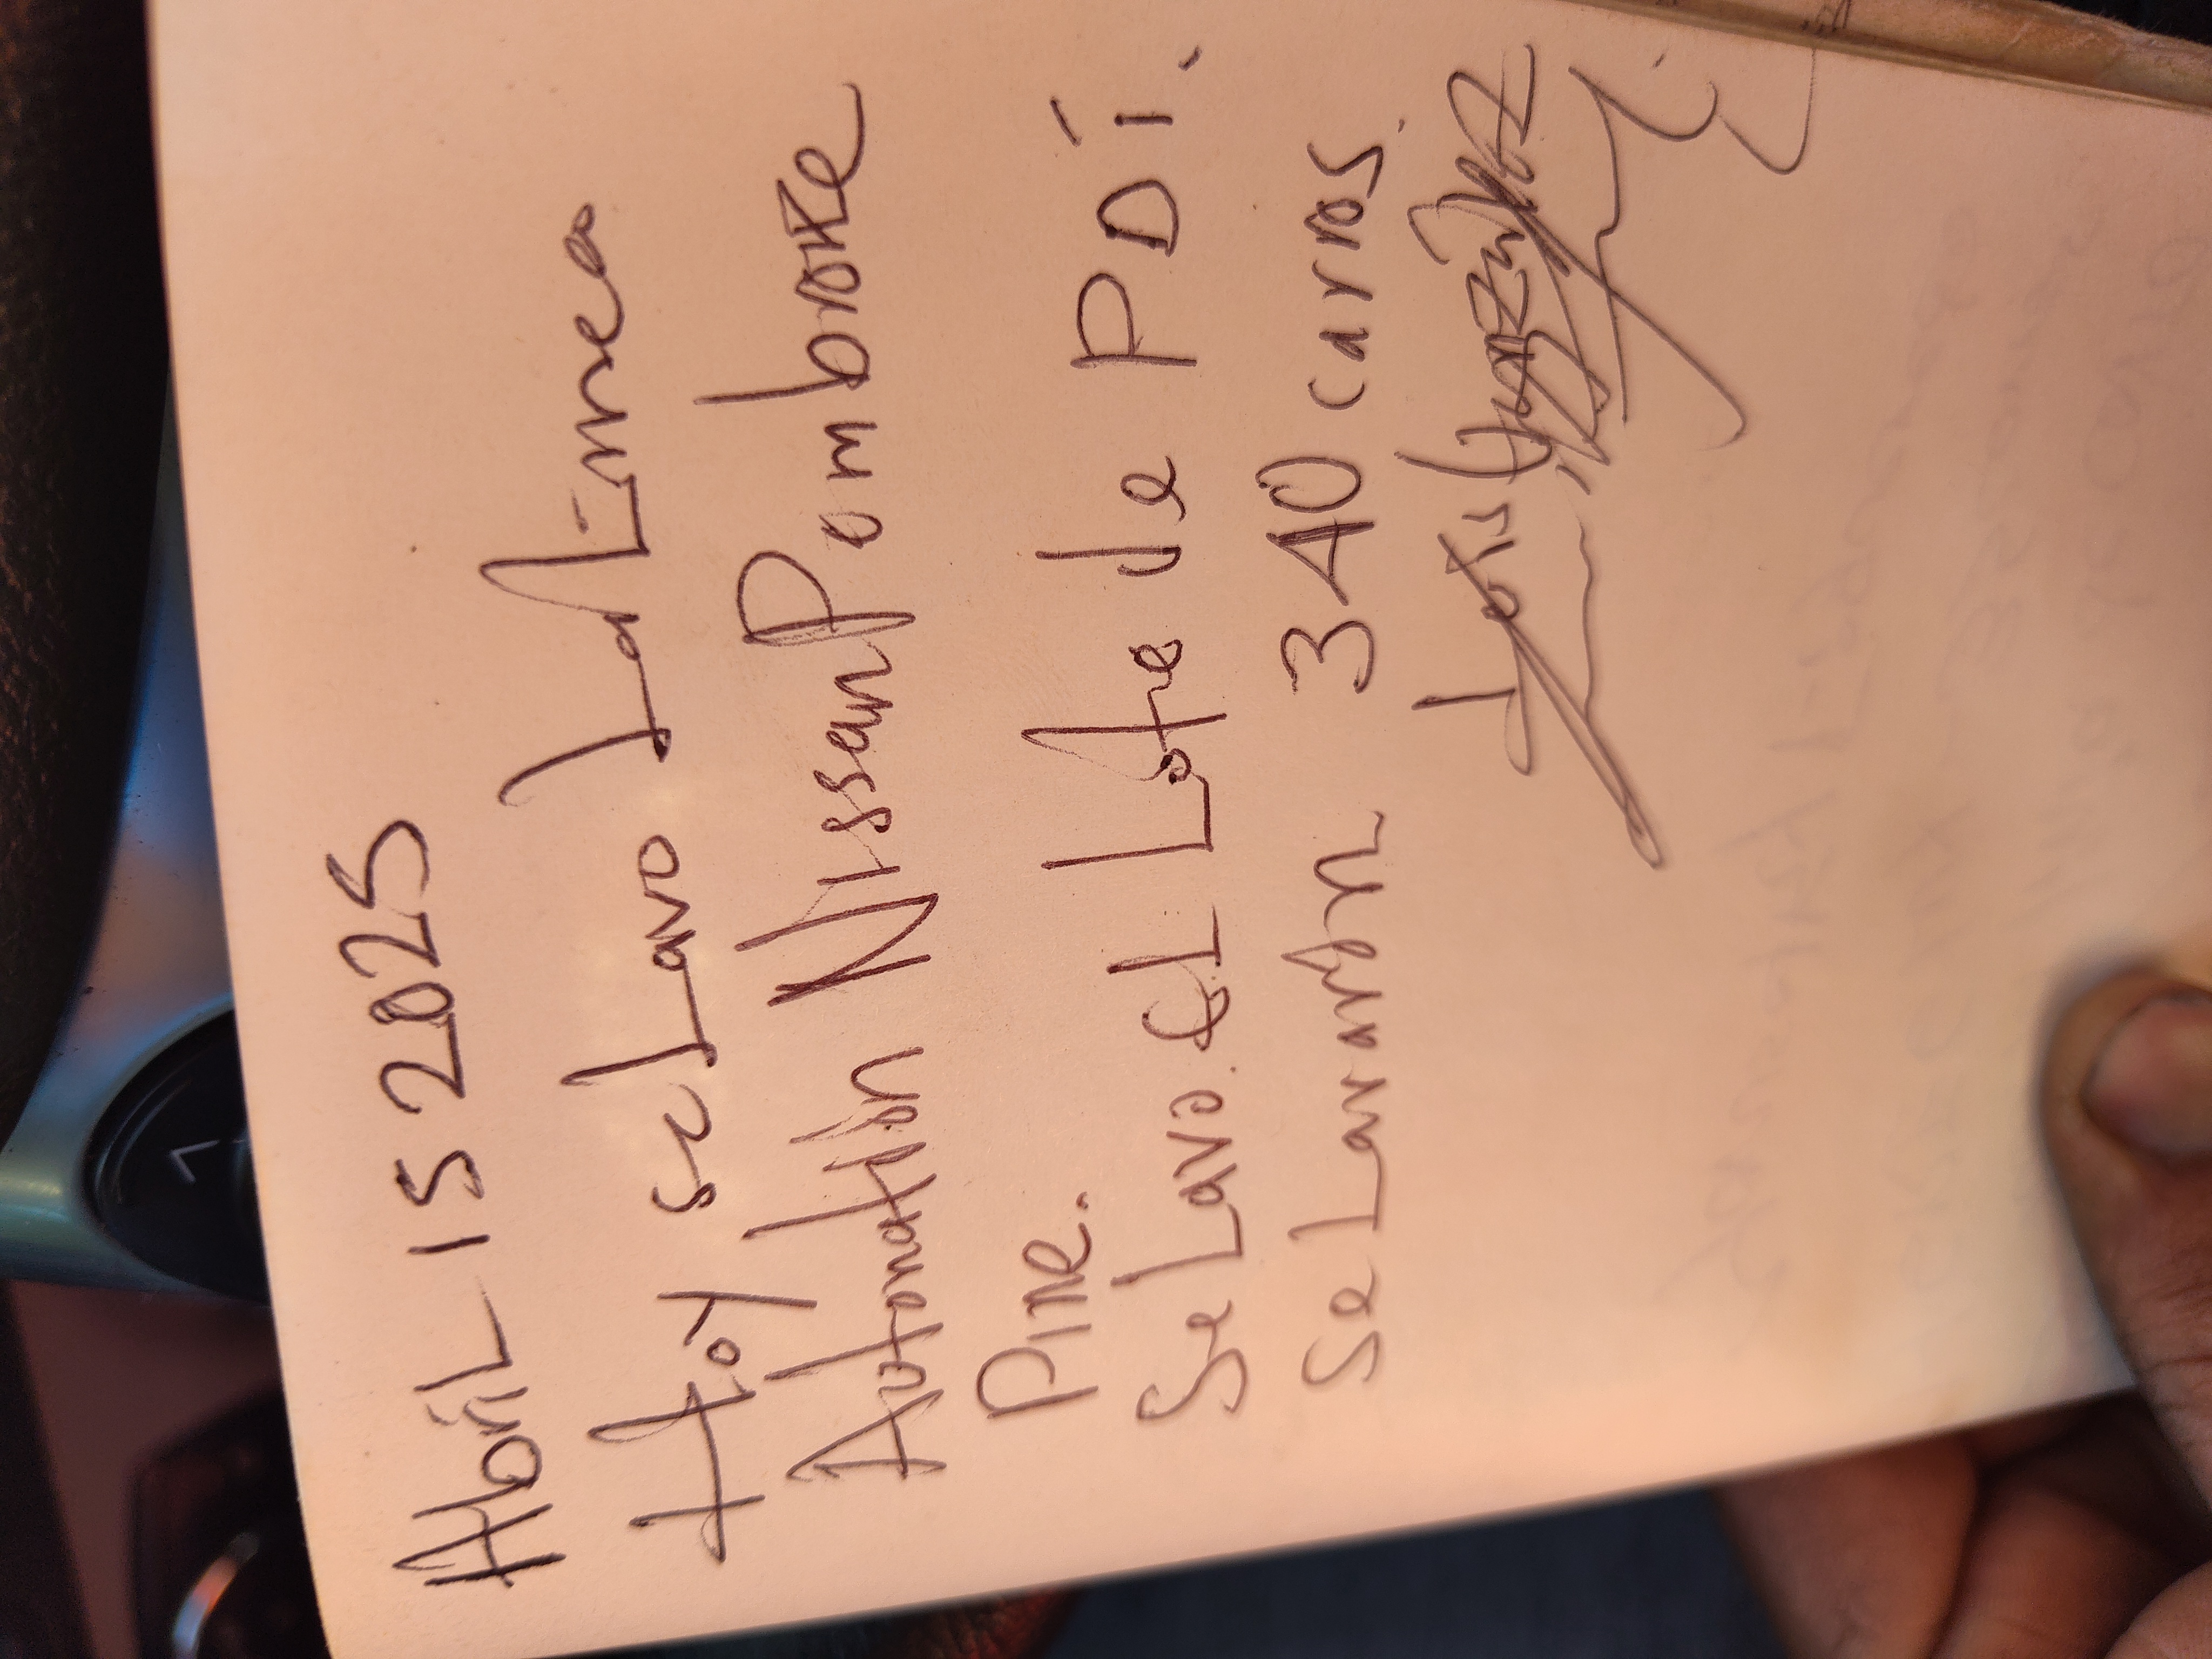 Abril 15 2025
Hoy se Lavo La Linea
Automation Nissan Pombroke
Pine.
Se Lavo. el Lote de PDi.
Se Lavaron 340 carros.
Luis